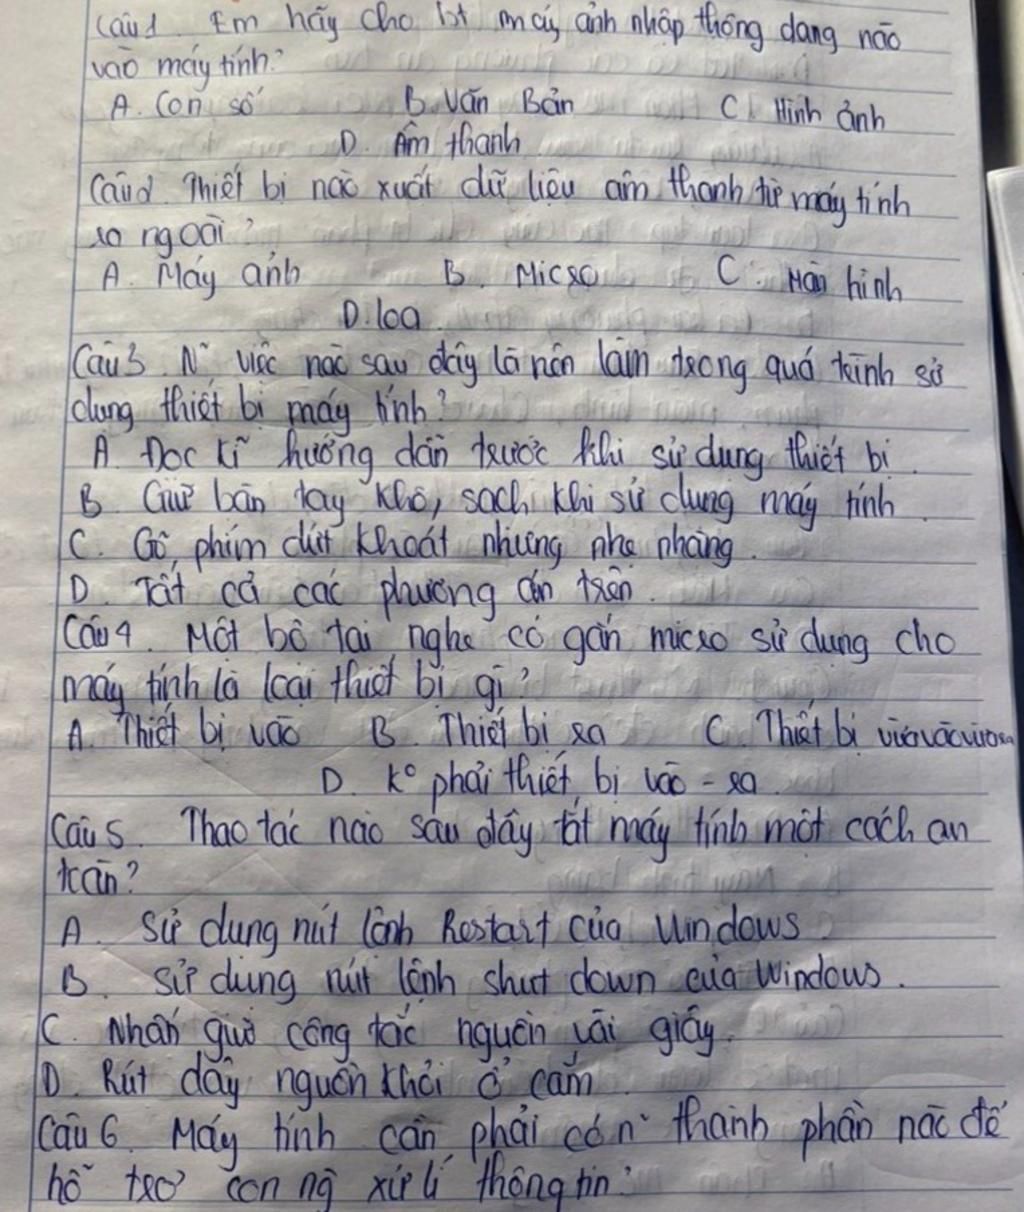 Câu 1. Em hãy cho bt máy ảnh nhập thông dạng nào
vào máy tính?
A. Con số B. Văn Bản C. Hình ảnh
D. Âm thanh
Câu 2. Thiết bị nào xuất dữ liệu âm thanh từ máy tính
ra ngoài?
A. Máy ảnh B. Micro C. Màn hình
D. loa
Câu 3. N~ việc nào sau đây là nên làm trong quá trình sử
dụng thiết bị máy tính?
A. Đọc kĩ hướng dẫn trước khi sử dụng thiết bị.
B. Giữ bàn tay khô, sạch khi sử dụng máy tính.
C. Gõ phím dứt khoát nhưng nhẹ nhàng.
D. Tất cả các phương án trên.
Câu 4. Một bộ tai nghe có gắn micro sử dụng cho
máy tính là loại thiết bị gì?
A. Thiết bị vào B. Thiết bị ra C. Thiết bị vừa vào vừa ra
D. k° phải thiết bị vào - ra.
Câu 5. Thao tác nào sau đây tắt máy tính một cách an
toàn?
A. Sử dụng nút lệnh Restart của Windows.
B. Sử dụng nút lệnh shut down của Windows.
C. Nhấn giữ công tắc nguồn vài giây.
D. Rút dây nguồn khỏi ổ cắm
Câu 6. Máy tính cần phải có n~ thành phần nào để
hỗ trợ con ng xử lí thông tin?